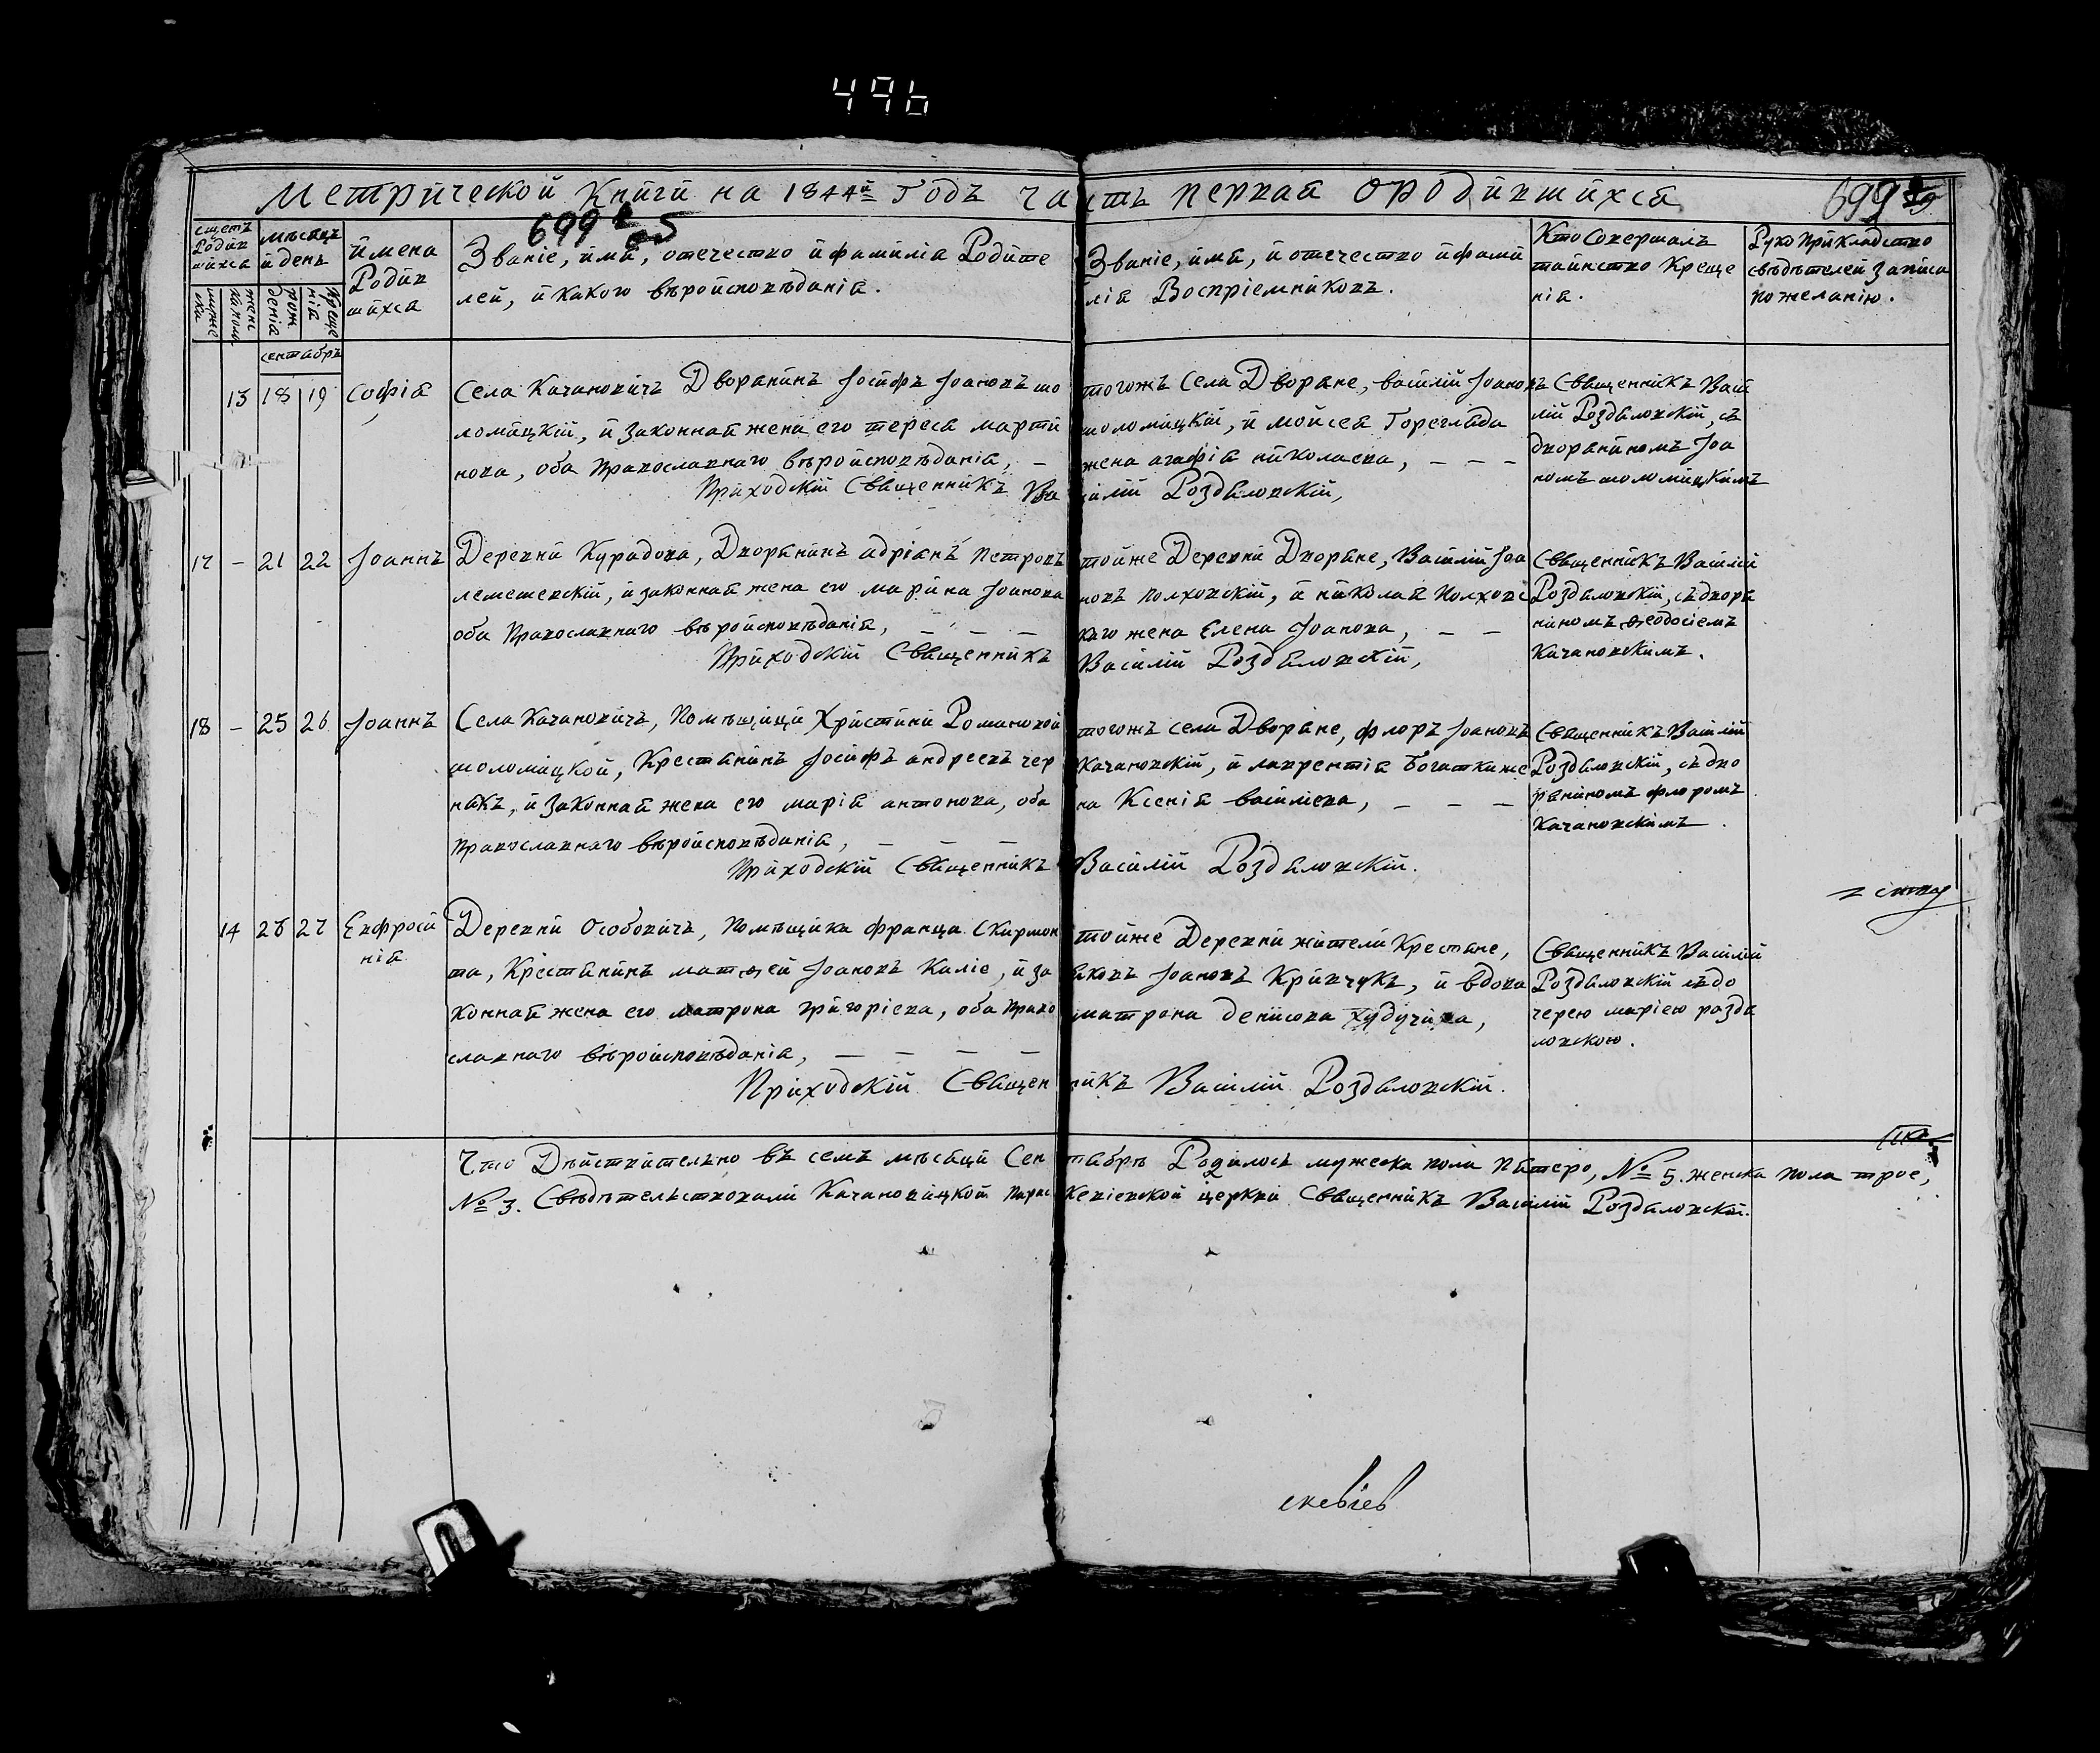 496
Метрической Книги на 1844й Годъ часть первая о родившихся
699
699
счетъ Родившихся
мужеска
женска пола
мѣсяцъ и день
рождения
Крещенія
имена Родившихся
Званіе, имя, отечество и фамилія Родите
лей, и какого вѣроисповѣданія.
Званіе, имя, и отечество и фами
лія Воспріемниковъ.
Кто Совершалъ
таинство Креще
нія.
Рукоприкладство
свѣдѣтелей записа
по желанію.
сентябрь
13 18 19 Софія
Села Качановичъ Дворянинъ Іосифъ Іоановъ шо
ломицкій, и законная жена его тереса марти
нова, оба Православнаго вѣроисповѣданія, —
Приходскій Священникъ Ва
тогожъ Села Дворяне, василій Іоановъ
шоломицкій, и мойсея Гореглада
жена агафія николаева, — — —
силій Роздяловскій,
Священникъ Васи
лій Роздяловскій, съ
дворяниномъ Іоа
номъ шоломицкимъ
17 — 21 22 Іоаннъ
Деревни Курадова, Дворянинъ адріанъ Петровъ
лемешевскій, и законная жена его марина Іоанова
оба Православнаго вѣроисповѣданія, — — —
Приходскій Священникъ
тойже Деревни Дворяне, Василій Іоа
новъ полховскій, и николая Полховс
каго жена Елена Іоанова, — —
Василій Роздяловскій,
Священникъ Василій
Роздяловскій, съ дворя
ниномъ ѳеодосіемъ
Качановскимъ.
18 — 25 26 Іоаннъ
Села Качановичъ, Помѣщици Христини Романовой
шоломицкой, Крестянинъ Іосифъ андреевъ чер
накъ, и законная жена его марія антонова, оба
православнаго вѣроисповѣданія, — — —
Приходскій Священникъ
тогожъ села Дворяне, флоръ Іоановъ
Качановскій, и лаврентія Богатка же
на Ксенія василіева, — — —
Василій Роздяловскій.
Священникъ Василій
Роздяловскій, съ дво
ряниномъ флоромъ
Качановскимъ.
14 26 27 Евфроси
нія
Деревни Особовичъ, помѣщика франца Скирмон
та, Крестянинъ матѳей Іоановъ Каліе, и за
конная жена его матрона григоріева, оба Право
славнаго вѣроисповѣданія, — — — —
Приходскій Священ
тойже Деревни жители Крестяне,
яковъ Іоановъ Кривчукъ, и вдова
матрона денисова худучиха,
никъ Василій Роздяловскій.
Священникъ Василій
Роздяловскій съ до
черею маріею роздя
ловскою.
Что Дѣйствительно въ семъ мѣсяци Сентябрѣ Родилось мужеска пола Пятеро, № 5. женска пола трое,
№ 3. Свѣдѣтельствовали Качановицкой Параскевіевской церкви Священникъ Василій Роздяловскій.
скевіев